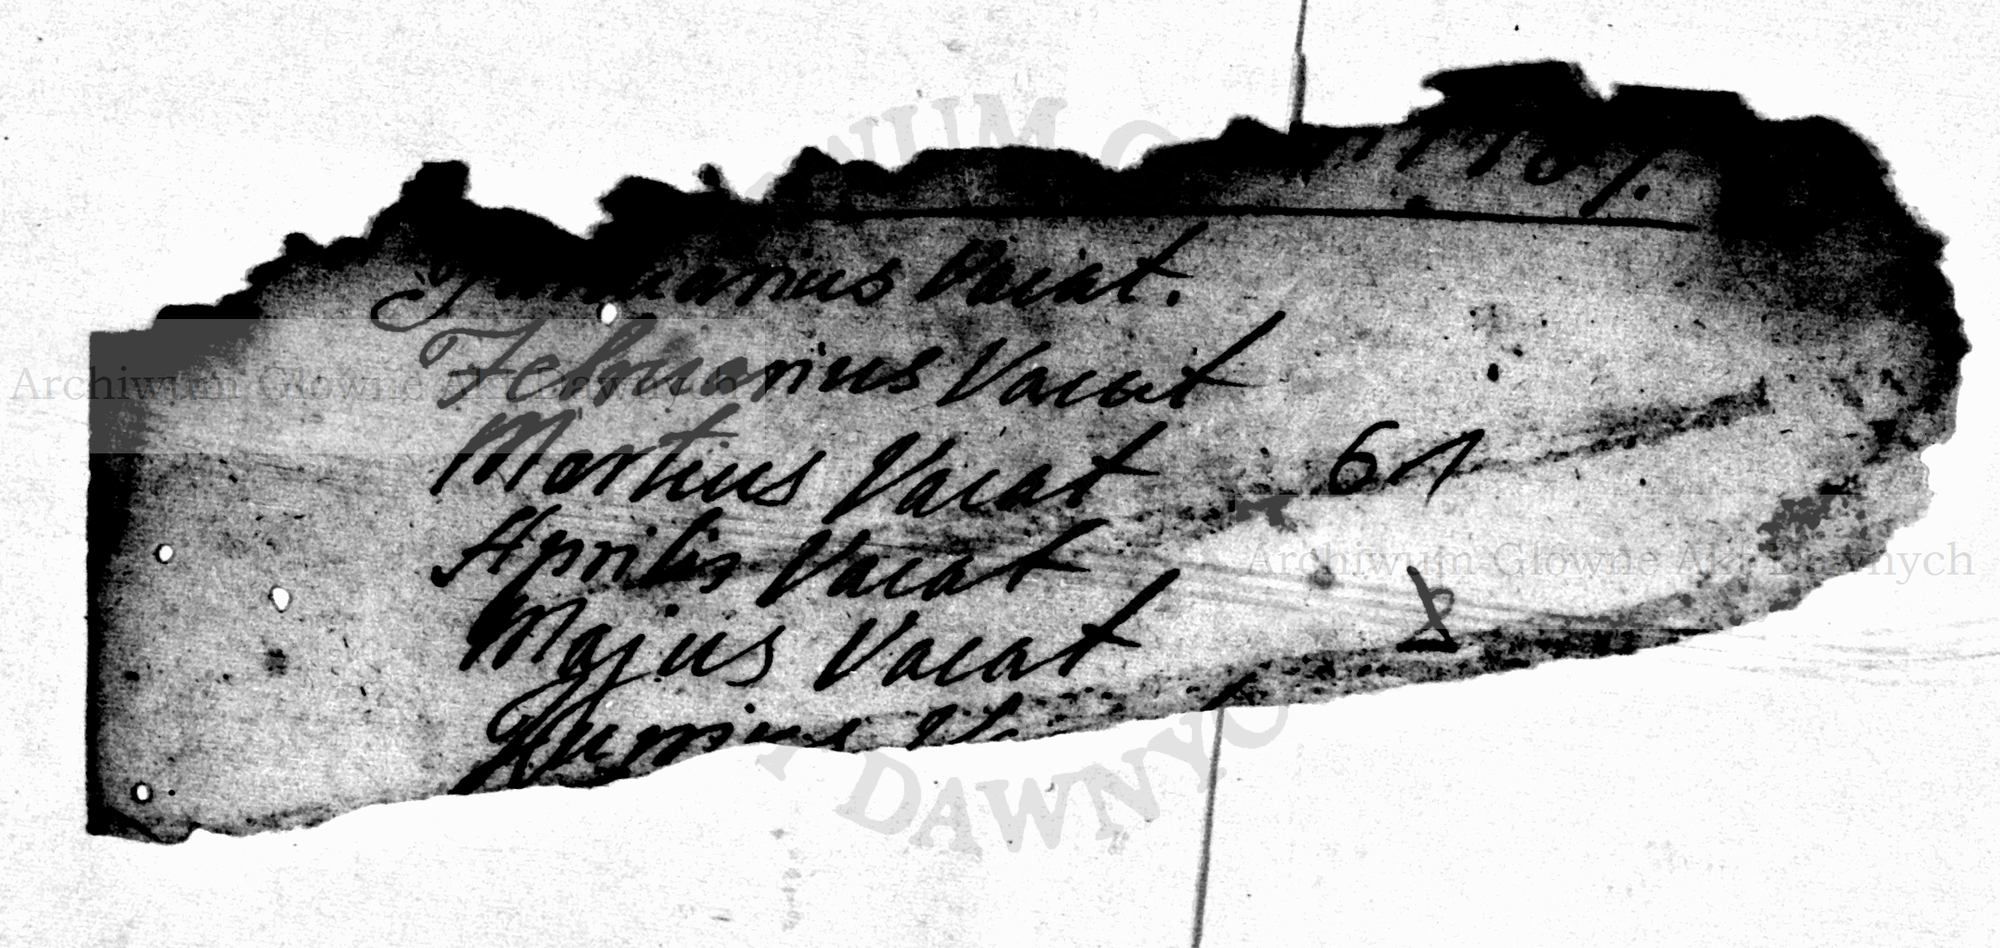 Januarius Vacat.
Februarius Vacat
Martius Vacat 61
Aprilis Vacat
Majus Vacat
Junius
Archiwum Glowne Akt Dawnych
Archiwum Glowne Akt Dawnych
DAWNYC